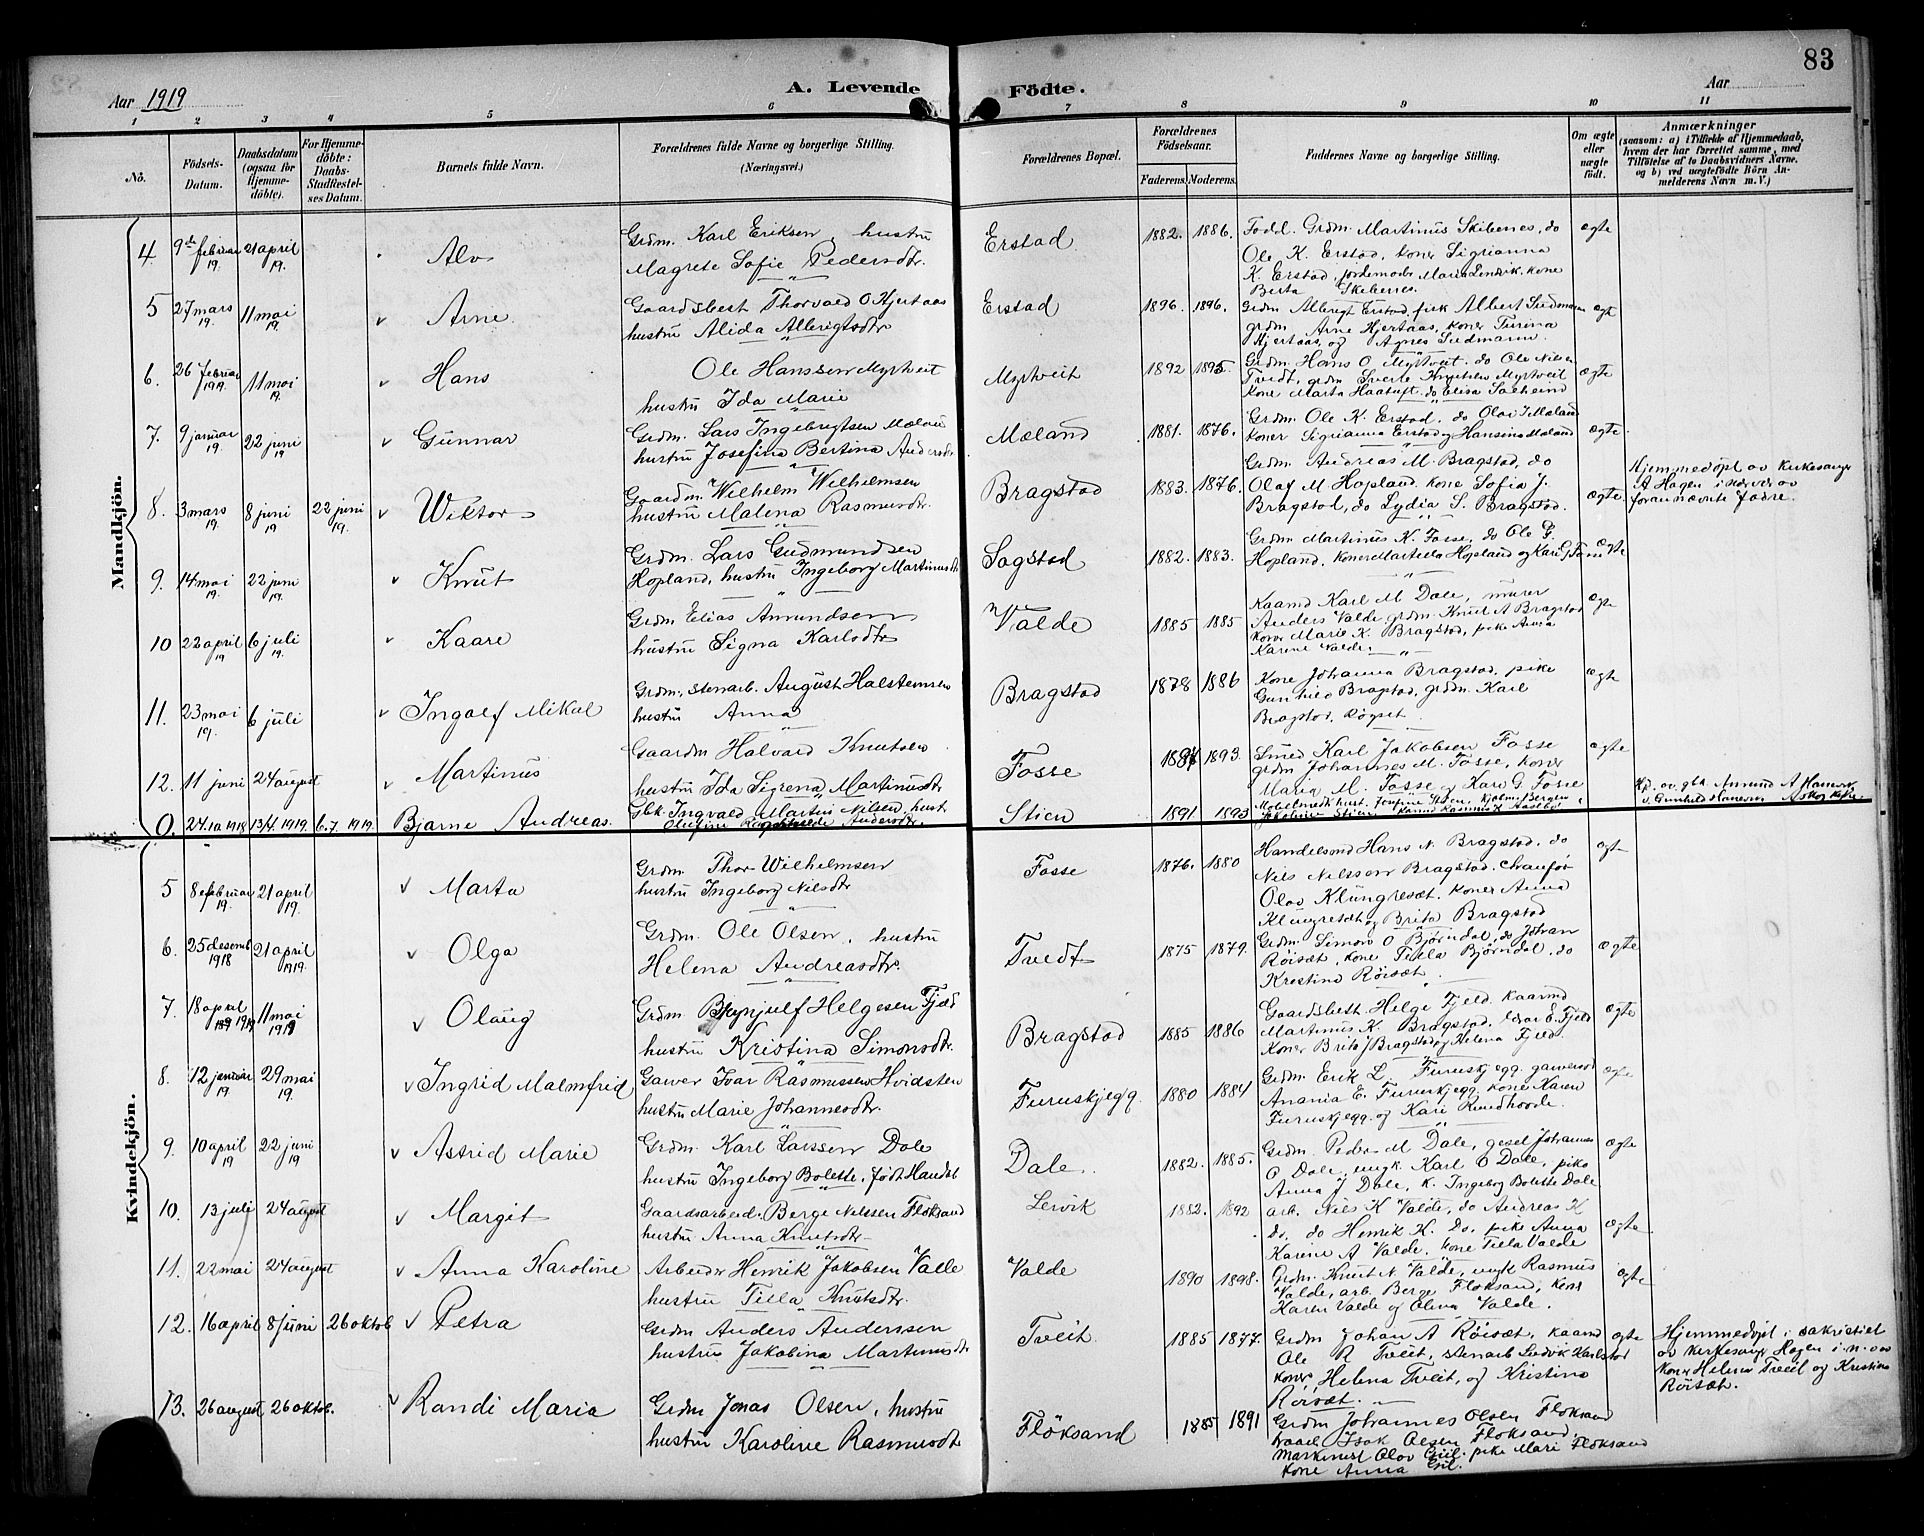 83
Aar 1919
A. Levende Födte.
Aar
1 2 3 4 5 6 7 8 9 10 11
No.
Födsels-Datum.
Daabsdatum (ogsaa for Hjemmedöbte).
For Hjemmedöbte: Daabs-Stadfæstelses Datum.
Barnets fulde Navn.
Forældrenes fulde Navne og borgerlige Stilling. (Næringsvei.)
Forældrenes Bopæl.
Forældrenes Födselsaar.
Faderens. Moderens.
Faddernes Navne og borgerlige Stilling.
Om ægte eller uægte födt.
Anmærkninger
(saasom: a) i Tilfælde af Hjemmedaab, hvem der har forrettet samme, med Tilföielse af to Daabsvidners Navne, og b) ved uægtefödte Börn Anmelderens Navn m. V.)
Mandkjön.
4 9de februar 19. 21 april 19. Alv
Grdm. Karl Eriksen, hustru
Magrete Sofie Pedersdtr.
Erstad 1882. 1886.
Fadd. Grdm. Martinus Skibenes, do
Ole K. Erstad, koner Sigrianna
K. Erstad, jordemoder Maria Lervik, kone
Berta Skibenes.
ægte
5 27 mars 19. 11 mai 19. v Arne.
Gaardsbest Thorvald O Hjertaas
hustru Alida Albrigtsdtr
Erstad 1896. 1896.
Grdm Albrigt Erstad, fisk Albert
grdm Arne Hjertaas, koner Turina
Hjertaas, og Agnes
ægte
6. 26 februar 1919. 11 mai 19. v Hans
Ole Hanssen Myrtveit
hustru Ida Marie
Myrtveit 1892 1895.
Grdm. Hans O Myrtveit. do Ole Nilsen
Tvedt, grdm Sverke Knutsen Myrtveit
Kone Marta Haatuft. do Elisa Solheim
ægte
7. 9 januar 19. 22 juni 19 v Gunnar
Grdm. Lars Ingebrigtsen Mæland
hustru Josefina Bertina Andersdtr
Mæland 1881. 1876.
Grdm. Ole K. Erstad, do Olav I Mæland
koner Sigrianna Erstad og Hansina Mæland
ægte.
8. 3 mars 19. 8 juni 19 22 juni 19. v Wiktor
Gaardm. Wilhelm Wilhelmsen
hustru Malena Rasmusdtr.
Bragstad 1883. 1876.
Grdm. Andreas M. Bragstad, do
Olaf M Hopland. kone Sofia J.
Bragstad, do Lydia S. Bragstad.
ægte
Hjemmedöpt av kirkesanger
A Hagen i nærvær av
forannævnte fadre.
9. 14 mai 19. 22 juni 19. v Knut
Grdm. Lars Gudmundsen
Hopland, hustru Ingeborg Martinusdtr
Sagstad 1882. 1883.
Grdm Martinus K. Fosse, do Ole G.
Hopland, koner Martilda Hopland og Kari G Fosse
ægte
10 22 april 19 6 juli 19. v Kaare
Grdm Elias Amundsen
hustru Signa Karlsdtr
Valde 1885 1885
Kaamd Karl M Dale, murer
Anders Valde, grdm. Knut A Bragstad
koner Marie K. Bragstad, pike Anna
Karine Valde.
ægte
11. 23 mai 19. 6 juli v Ingolf Mikal
Grdm, stenarb. August Halstensen
hustru Anna
Bragstad 1878 1886
Kone Johanna Bragstad, pike
Gunhild Bragstad, grdm. Karl
Bragstad, Röyset.
ægte
12. 11 juni 24 august v Martinus
Gaardm Halvard Knutsen
hustru Ida Sigrena Martinusdtr
Fosse 1887 1893.
Smed Karl Jakobsen Fosse
grdm Johannes M. Fosse, koner
Maria M. Fosse og Kari G. Fosse
ægte
0. 24.10 1918 13/4.1919. 6.7.1919. Bjarne Andreas.
Gbk. Ingvald Martin Nilsen, hust.
Olufine Andersdtr.
Stien 1891 1893
Kvindekjön.
5 8 februar 19. 21 april 19. v Marta
Grdm. Thor Wilhelmsen
hustru Ingeborg Nilsdtr
Fosse 1876. 1880
Handelsmd Hans N. Bragstad, do
Nils Nilssen Bragstad. Chaufför
Olov Klungreset. koner Anna
Klungresæt og Brita Bragstad
ægte
6. 25 desemb 1918 21 april 1919. v Olga
Grdm. Ole Olsen, hustru
Helena Andreasdtr.
Tvedt 1875 1879.
Grdm. Simon O Björndal, do Johan
Röisæt, kone Tilla Björndal, do
Kristina Röisæt.
ægte
7. 18 april 1919 11 mai 1919 v Olaug
Grdm Brynjulf Helgesen Fjeld
hustru Kristina Simonsdtr.
Bragstad 1885 1886
Gaardsbesth Helge Fjeld. kaarmd
Martinus K. Bragstad, E. Fjeld
koner Brita J Bragstad og Helena Fjeld.
ægte
8. 12 januar 19. 29 mai 19. v Ingrid Malmfrid
Garver Ivar Rasmussen Hvidsten
hustru Marie Johannesdtr.
Furuskjegg. 1880 1884
Grdm. Erik L. Furuskjegg, garversv
Anania E. Furuskjegg, kone Karen
Furuskjegg. og Kari Rundhovde.
ægte
9. 10 april 19 22 juni 19 v Astrid Marie
Grdm. Karl Larssen Dale
hustru Ingeborg Bolette, født Handal
Dale. 1882. 1885.
Grdm. Peder M Dale, gesel Johannes
O Dale, ungk. Karl O Dale, pike
Anna J Dale, k. Ingeborg Bolette Dale
ægte
10. 13 juli 24 august v Margit
Gaardsarbeider Berge Nilssen Floksand
hustru Anna Knutsdtr
Leirvik 1882. 1892
arb. Nils K Valde, do Andreas K
do, do Henrik K. do, pike Anna
Karine A Valde, kone Tilla Valde
ægte
11. 22 mai 24 august v Anna Karoline
Arbeider Henrik Jakobsen Valle
hustru Tilla Knutsdtr.
Valde 1890 1898.
Grdm. Knut N. Valde, ungk Rasmus
Valde, arb. Berge Floksand, kone
Karen Valde og Olina Valde.
ægte
12. 16 april 8 juni 26 oktob v Petra
Grdm Anders Anderssen
hustru Jakobina Martinusdtr
Tveit 1885 1877.
Grdm. Johan A Röisæt, kaamd
Ole R Tveit, stenarb Ludvik Karlstad
koner Helena Tveit, og Kristina
Röisæt.
ægte
Hjemmedöpt i sakristiet
av kirkesanger Hagen i n. av
koner Helena Tveit og Kristina
Röisæt.
13. 26 august 26 oktob. v Randi Maria
Grdm Jonas Olsen, hustru
hustru Karoline Rasmusdtr
Flöksand 1885 1891
Grdm Johannes Olsen Floksand
Isak Olsen Floksand,
Olov pike Mari Floksand
kone Anna